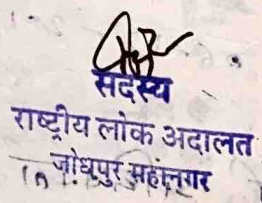 सदस्य
राष्ट्रीय लोक अदालत
जोधपुर महानगर